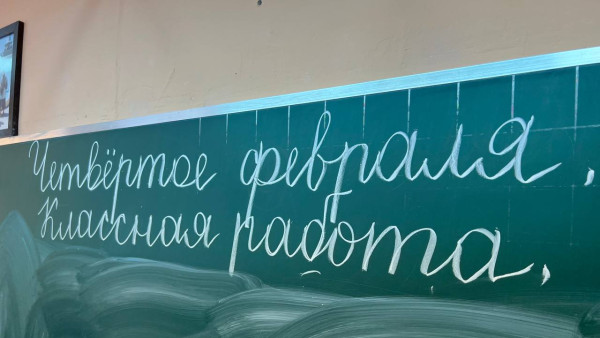 Четвёртое февраля.
Классная работа.